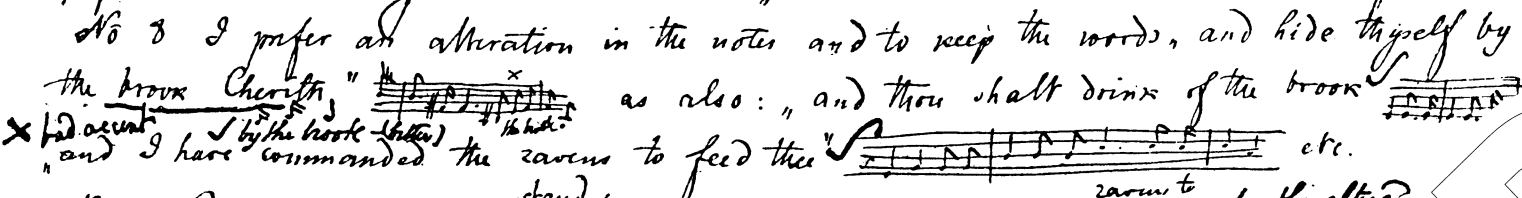 No 8 I prefer an alteration in the notes and to keep the words „ and hide thyself by
the brook Cherith " as also: „ and thou shalt drink of the brook
× bad accent by the brook (better) the brook
„ and I have commanded the ravens to feed thee " etc.
ravens to